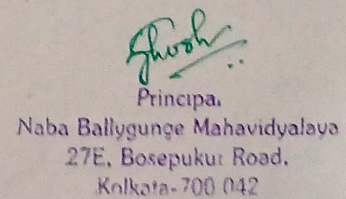 Ghosh
Principa.
Naba Ballygunge Mahavidyalaya
27E, Bosepukur Road.
Kolkata-700 042